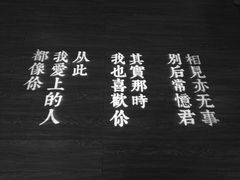 相見亦无事
别后常憶君
其實那時
我也喜歡你
从此
我愛上的人
都像你